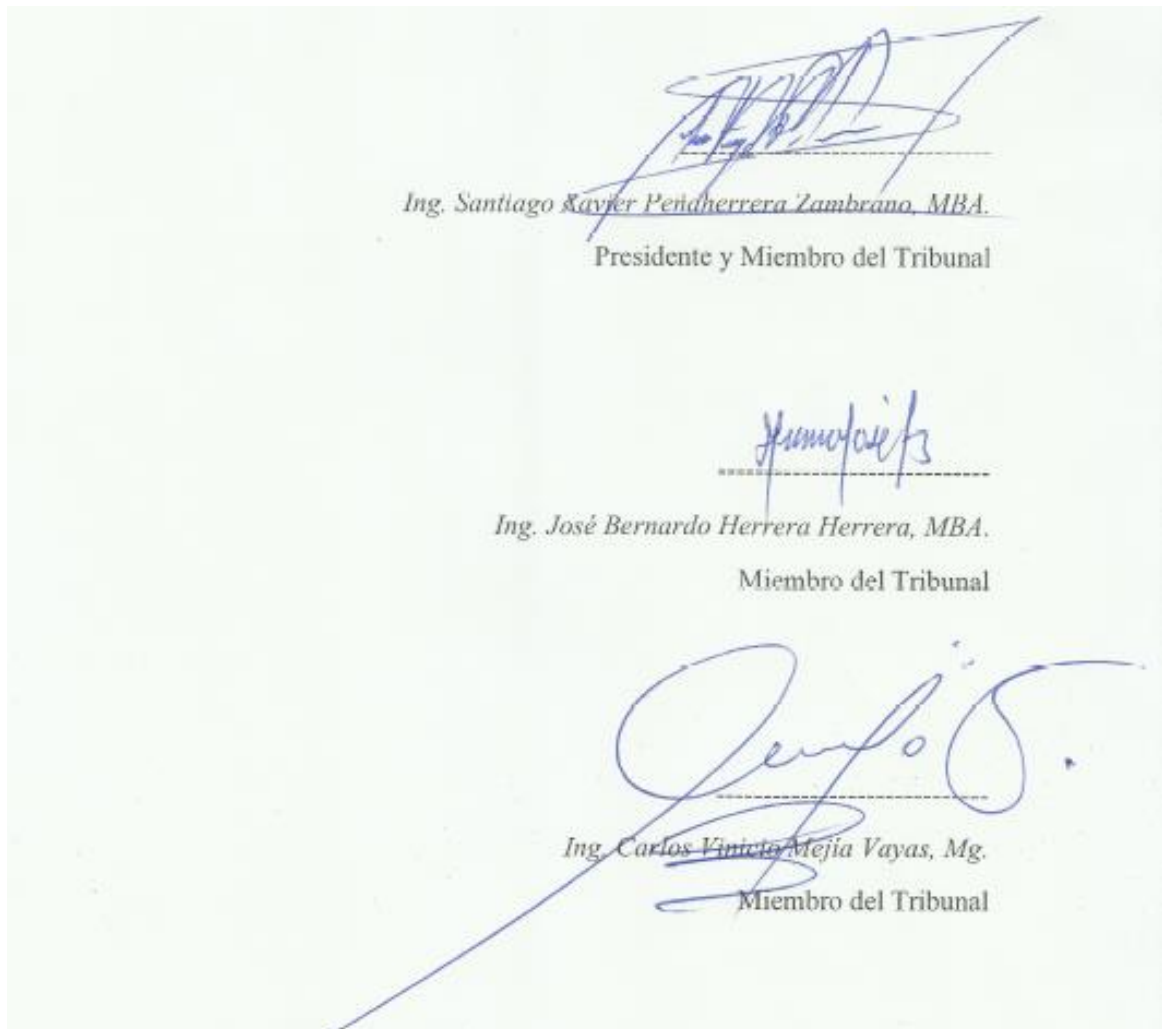 Ing. Santiago Xavier Peñaherrera Zambrano, MBA.
Presidente y Miembro del Tribunal
José
Ing. José Bernardo Herrera Herrera, MBA.
Miembro del Tribunal
Ing. Carlos Vinicio Mejía Vayas, Mg.
Miembro del Tribunal